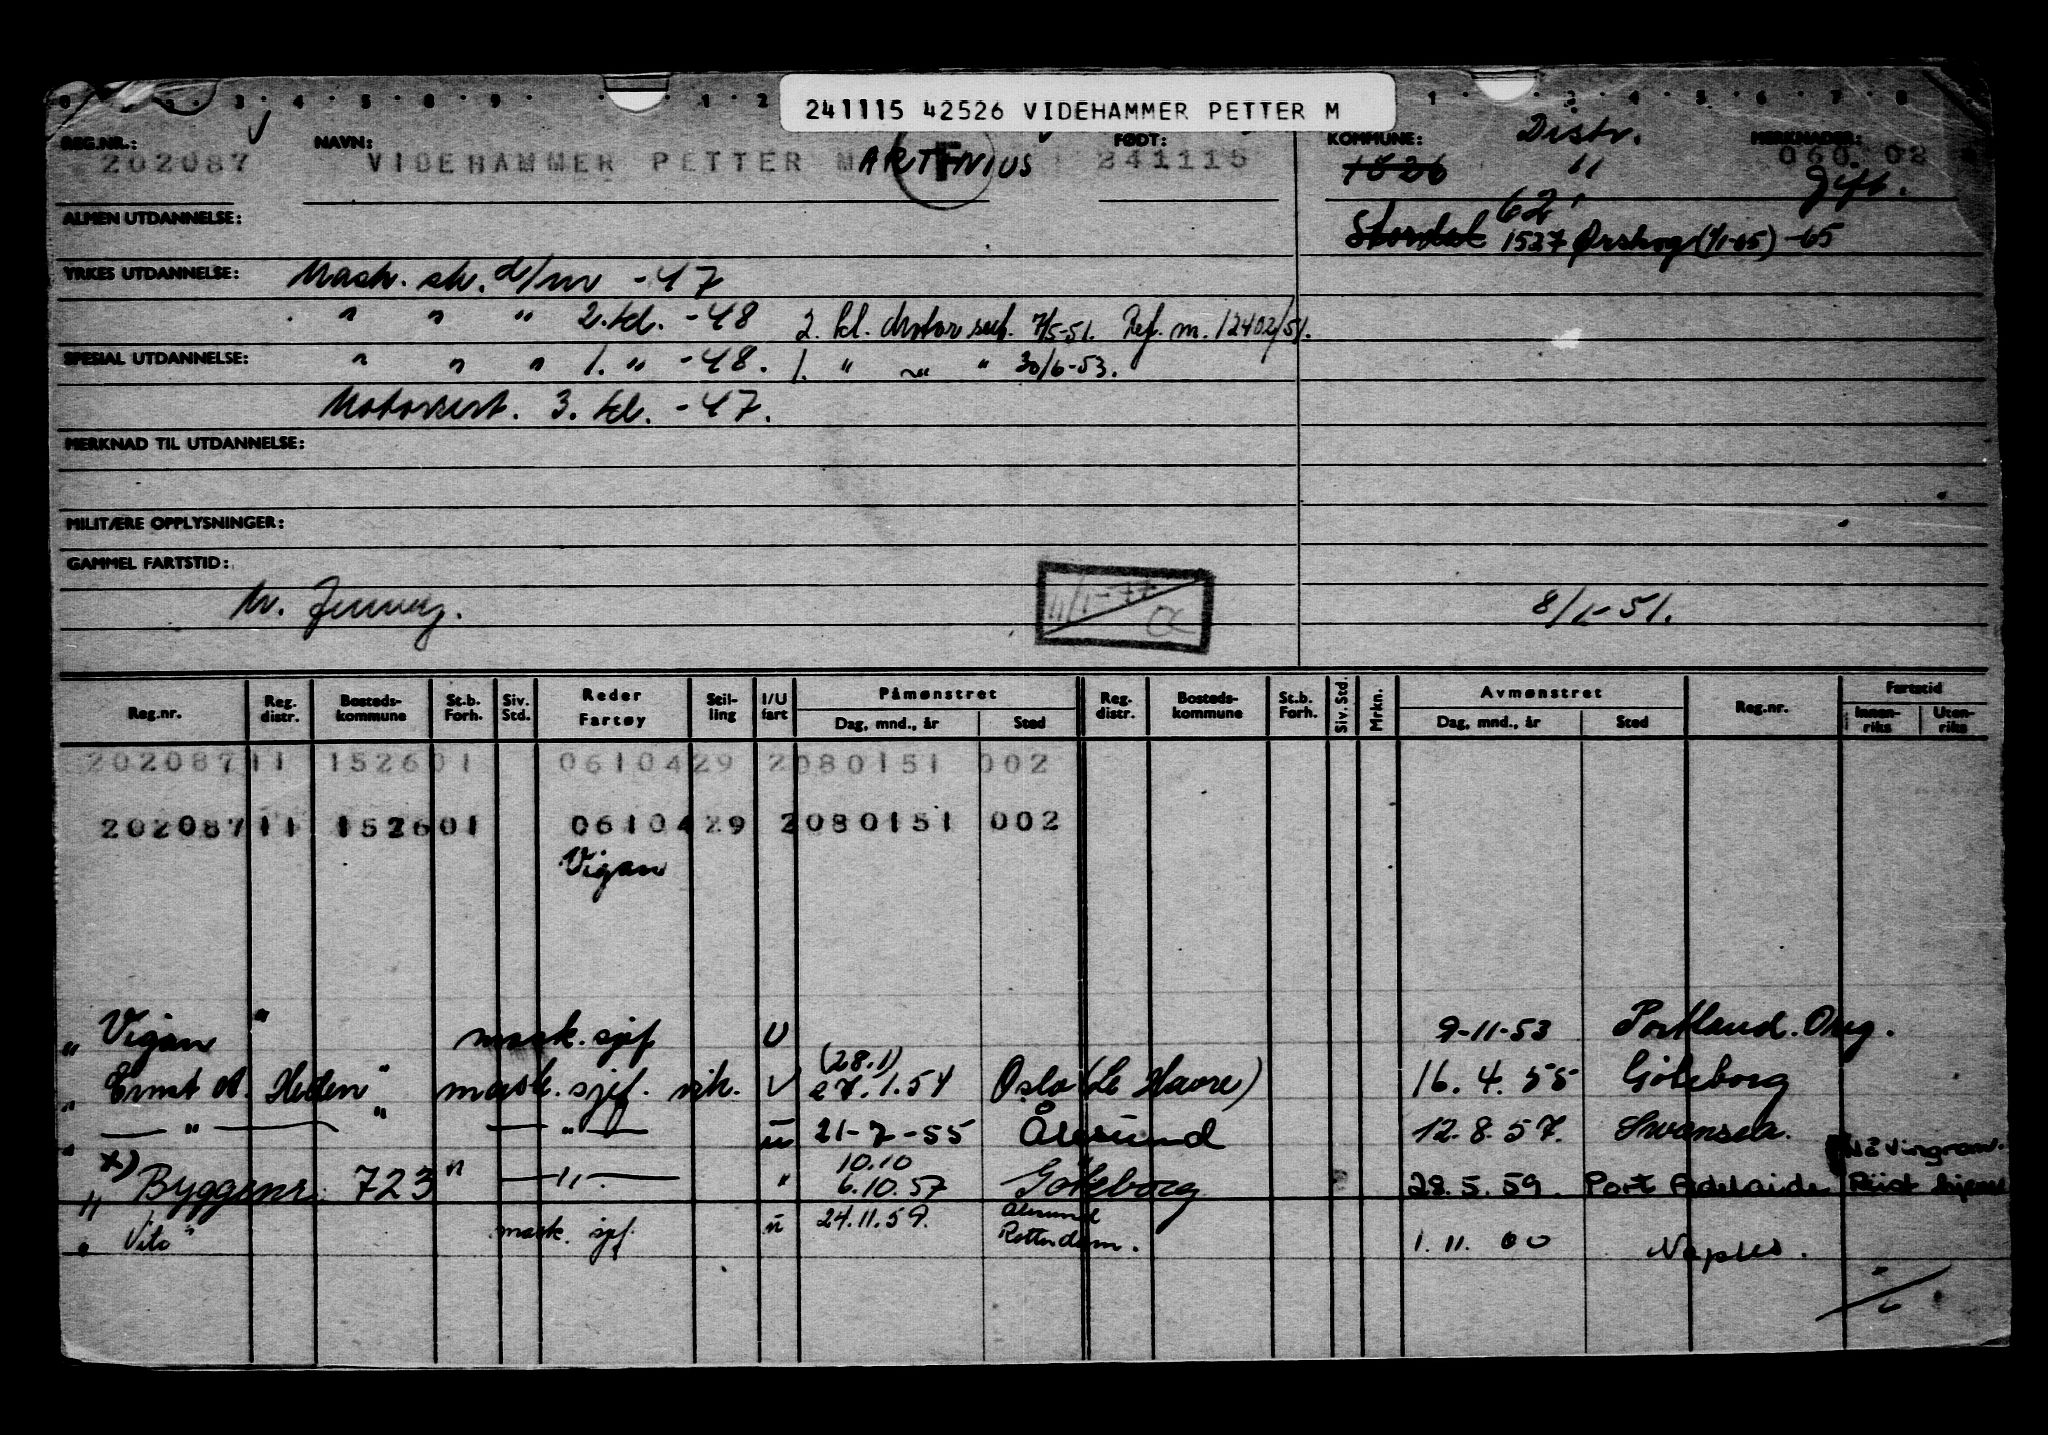 241115 42526 VIDEHAMMER PETTER M
REG.NR.: NAVN: FØDT: KOMMUNE: Distr. MERKNADER:
202087 VIDEHAMMER PETTER MARTINIUS 241115 1526 " 060.02
Gift.
ALMEN UTDANNELSE: Stordal 62 1527 Ørskog (1/1-65) -65
YRKES UTDANNELSE: Mask. sk. d/m -47
" " " 2. kl. -48 2. kl. Motor sert. 7/5-51. Ref. m. 12402/51.
SPESIAL UTDANNELSE: " " " 1. " -48. 1. " " " 30/6-53.
Motorsert. 3. kl. -47.
MERKNAD TIL UTDANNELSE:
MILITÆRE OPPLYSNINGER:
GAMMEL FARTSTID:
11/1-77
8/1-51.
Reg.nr. Reg. distr. Bosteds-kommune St.b. Forh. Siv. Std. Reder Fartøy Stil-ling I/U fart Påmønstret Dag, mnd., år Sted Reg. distr. Bosteds-kommune St.b. Forh. Siv. Std. Mrkn. Avmønstret Dag, mnd., år Sted Reg.nr. Fartstid Innen-riks Uten-riks
202087 11 152601 0610429 2080151 002
202087 11 152601 0610429 2080151 002
Vigan
" Vigan " mask. sjef U 9-11-53 Portland. Oreg.
(28.1)
" Ernst A. Heden " mask. sjef. vik. U 27.1.54 Oslo (Le Havre) 16.4.55 Göteborg
" — " — " — " — u 21-7-55 Ålesund 12.8.57. Swansea.
x) 10.10 " Nå Vingrom.
" Byggenr. 723 " — " — " 6.10.57 Göteborg 28.5.59. Port Adelaide Reist hjem
Ålesund
" Vito " mask. sjef. u 24.11.59. Rotterdam. 1.11.60 Naples.